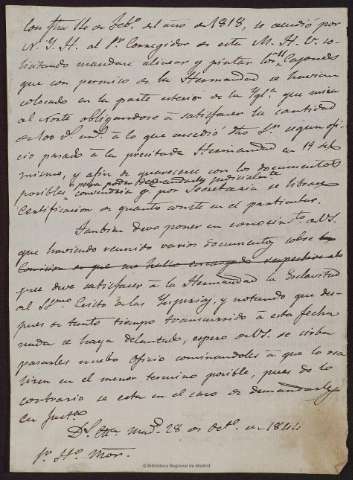 con fha 16 de Feb.º del año de 1818, se acudió por
N. Y. H. al S.r Corregidor de esta M. H. V. so-
licitando mandase alinear y pintar los Cajones
que con permiso de la Hermandad se havian
colocado en la parte exterior de la Ygl.a que mira
al norte obligandose á satisfacer la cantidad
de 100 d.s á lo que accedió dho S.r segun ofi-
cio pasado á la precitada Hermandad en 14 del
mismo, y afin de guarecerse con los documentos
para poder demandar judicialmte
posibles convendria q.e por Secretaria se librase
Certificacion de quanto conste en el particular.
Tambien devo poner en conocim.to de V.S.
que haviendo reunido varios documentos sobre lo
que deve satisfacer á la Hermandad la Esclavitud
al SS.mo Cristo de las Injurias, y notando que des-
pues de tanto tiempo transcurrido á esta fecha
nada se haya adelantado, espero de V.S. se sirva
pasarles nuebo Oficio conminandoles á que lo rea-
lizen en el menor termino posible, pues de lo
contrario se esta en el caso de demandarles
en Just.a
D.s Mad.d 28 de Oct.e de 1844
S.r H.no Mor.
©Biblioteca Regional de Madrid